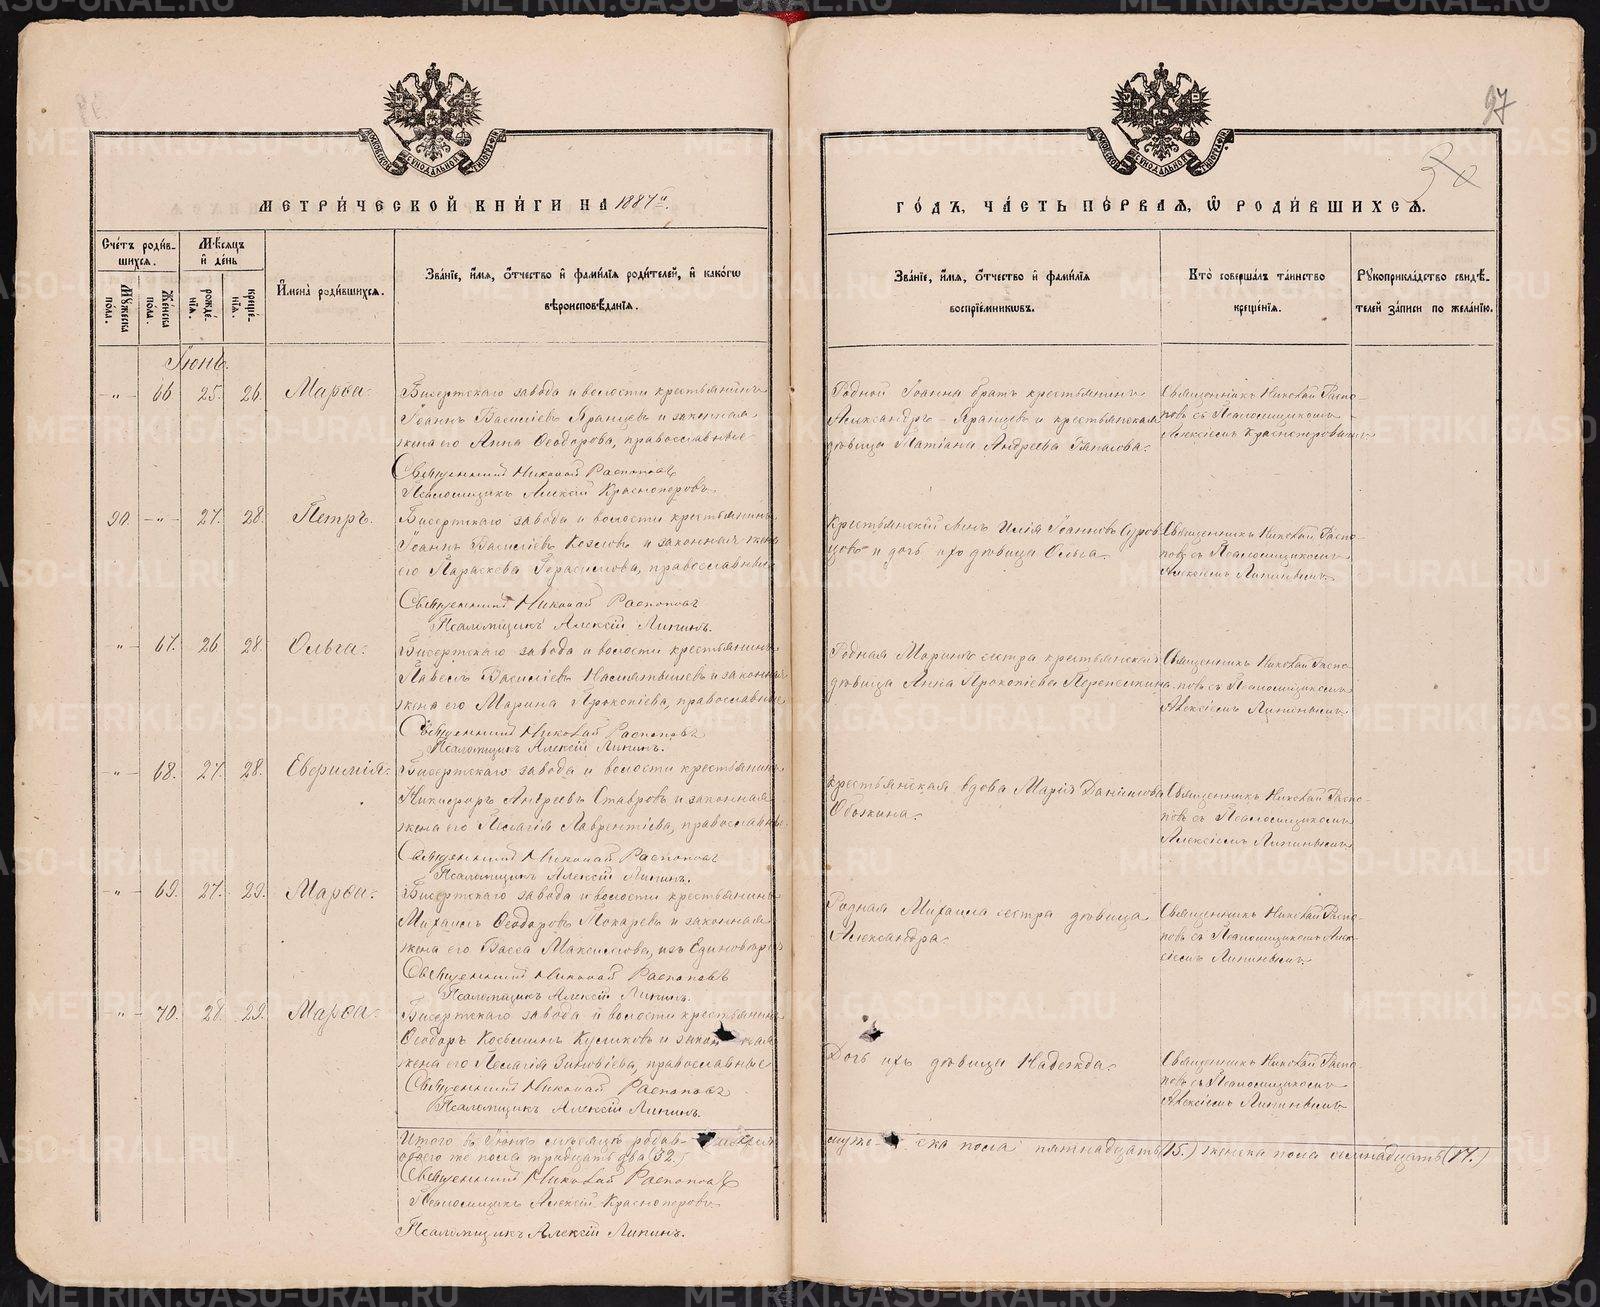 97
МЕТРИ́ЧЕСКОЙ КНИ́ГИ НА 1887й.
ГО́ДЪ, ЧА́СТЬ ПЕ́РВАЯ, Ѡ РОДИ́ВШИХСЯ.
Сче́тъ роди́в-
шихся.
Му́жеска пола.
Же́нска пола.
Мѣ́сяцъ
и́ де́нь
рожде́нїя.
креще́нїя.
И҆мена̀ роди́вшихся.
Зва́нїе, и҆́мя, ѻ҆́тчество и҆ фами́лїя роди́телей, и҆ како́гѡ
вѣроисповѣ́данїя.
Зва́нїе, и҆́мя, ѻ҆́тчество и҆ фами́лїя
воспрїе́мникѡвъ.
Кто̀ соверша́лъ та́инство
креще́нїя.
Рꙋкоприкла́дство свидѣ́-
телей за́писи по жела́нїю.
Іюнь.
-„- 66 25. 26. Марѳа.
Бисертскаго завода и волости крестьянинъ
Іоаннъ Василіевъ Яранцевъ и законная
жена его Анна Ѳеодорова, православные
Священникъ Николай Распоповъ
Псаломщикъ Алексій Красноперовъ.
Родной Іоанна братъ крестьянинъ
Александръ Яранцевъ и крестьянская
дѣвица Татіана Андреева
Священникъ Николай Распо-
повъ съ Псаломщикомъ
Алексіемъ Красноперовымъ
90. -„- 27. 28. Петръ.
Бисертскаго завода и волости крестьянинъ
Іоаннъ Василіевъ Козловъ и законная жена
его Параскева Герасимова, православные
Священникъ Николай Распоповъ
Псаломщикъ Алексій Липинъ.
Крестьянскій сынъ Илія Іоанновъ
и дочь ихъ дѣвица Ольга.
Священникъ Николай Распо-
повъ съ Псаломщикомъ
Алексіемъ Липинымъ.
„ 67. 26 28. Ольга.
Бисертскаго завода и волости крестьянинъ
Павелъ Василіевъ и законная
жена его Марина Прокопіева, православные
Священникъ Николай Распоповъ
Псаломщикъ Алексій Липинъ.
Родная Марины сестра крестьянская
дѣвица Анна Прокопіева Перепелкина.
Священникъ Николай Распо-
повъ съ Псаломщикомъ
Алексіемъ Липинымъ
-„- 68. 27. 28. Евфимія.
Бисертскаго завода и волости крестьянинъ
Никифоръ Андреевъ Ставровъ и законная
жена его Пелагія Лаврентіева, православные
Священникъ Николай Распоповъ
Псаломщикъ Алексій Липинъ.
Крестьянская вдова Марія Даніилова
Священникъ Николай Распо-
повъ съ Псаломщикомъ
Алексіемъ Липинымъ
„ 69. 27. 29. Марѳа.
Бисертскаго завода и волости крестьянинъ
Михаилъ Ѳеодоровъ Токаревъ и законная
жена его Васса Максимова, изъ Единовѣрц.
Священникъ Николай Распоповъ
Псаломщикъ Алексій Липинъ.
Родная Михаила сестра дѣвица
Александра.
Священникъ Николай Распо-
повъ съ Псаломщикомъ Алек-
сіемъ Липинымъ.
-„- 70. 28. 29. Марѳа.
Бисертскаго завода и волости крестьянинъ
Ѳеодоръ Косьминъ Куликовъ и законная
жена его Пелагія Зиновіева, православные
Священникъ Николай Распоповъ
Псаломщикъ Алексій Липинъ.
Дочь ихъ дѣвица Надежда.
Священникъ Николай Распо-
повъ съ Псаломщикомъ
Алексіемъ Липинымъ
Итого въ Іюнѣ мѣсяцѣ родив-
обоего же пола тридцать два (32.)
муже ска пола пятнадцать (15.) женска пола семнадцать (17.)
Священникъ Николай Распоповъ
Псаломщикъ Алексій Красноперовъ
Псаломщикъ Алексій Липинъ.
METRIKI.GASO-URAL.RU